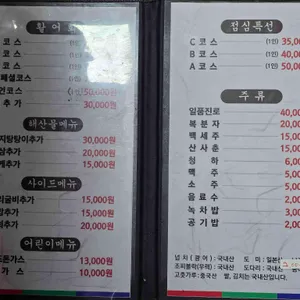 활 어
코스 (1인)
코스 (1인)
코스 (1인)
페셜코스
건코스 (1인) 50,000원
추가 30,000원
해산물메뉴
지탕탕이추가 30,000원
삼추가 20,000원
게추가 15,000원
사이드메뉴
리굴비추가 15,000원
장추가 15,000원
추가 10,000원
어린이메뉴
드돈가스 13,000원
가스 10,000원
점심특선
C 코스 (1인) 35,00
B 코스 (1인) 40,00
A 코스 (1인) 50,00
주 류
일품진로 40,0
복분자 20,00
백세주 15,00
산사춘 15,00
청하 6,00
맥주 5,00
소주 5,00
음료수 2,00
녹차밥 3,00
공기밥 2,00
넙 치 (광 어) : 국내산 도 미 : 일본
조피볼락(우럭) : 국내산 도다리 : 국내
고춧가루 : 중국산 쌀, 김치는 국내산입니다.